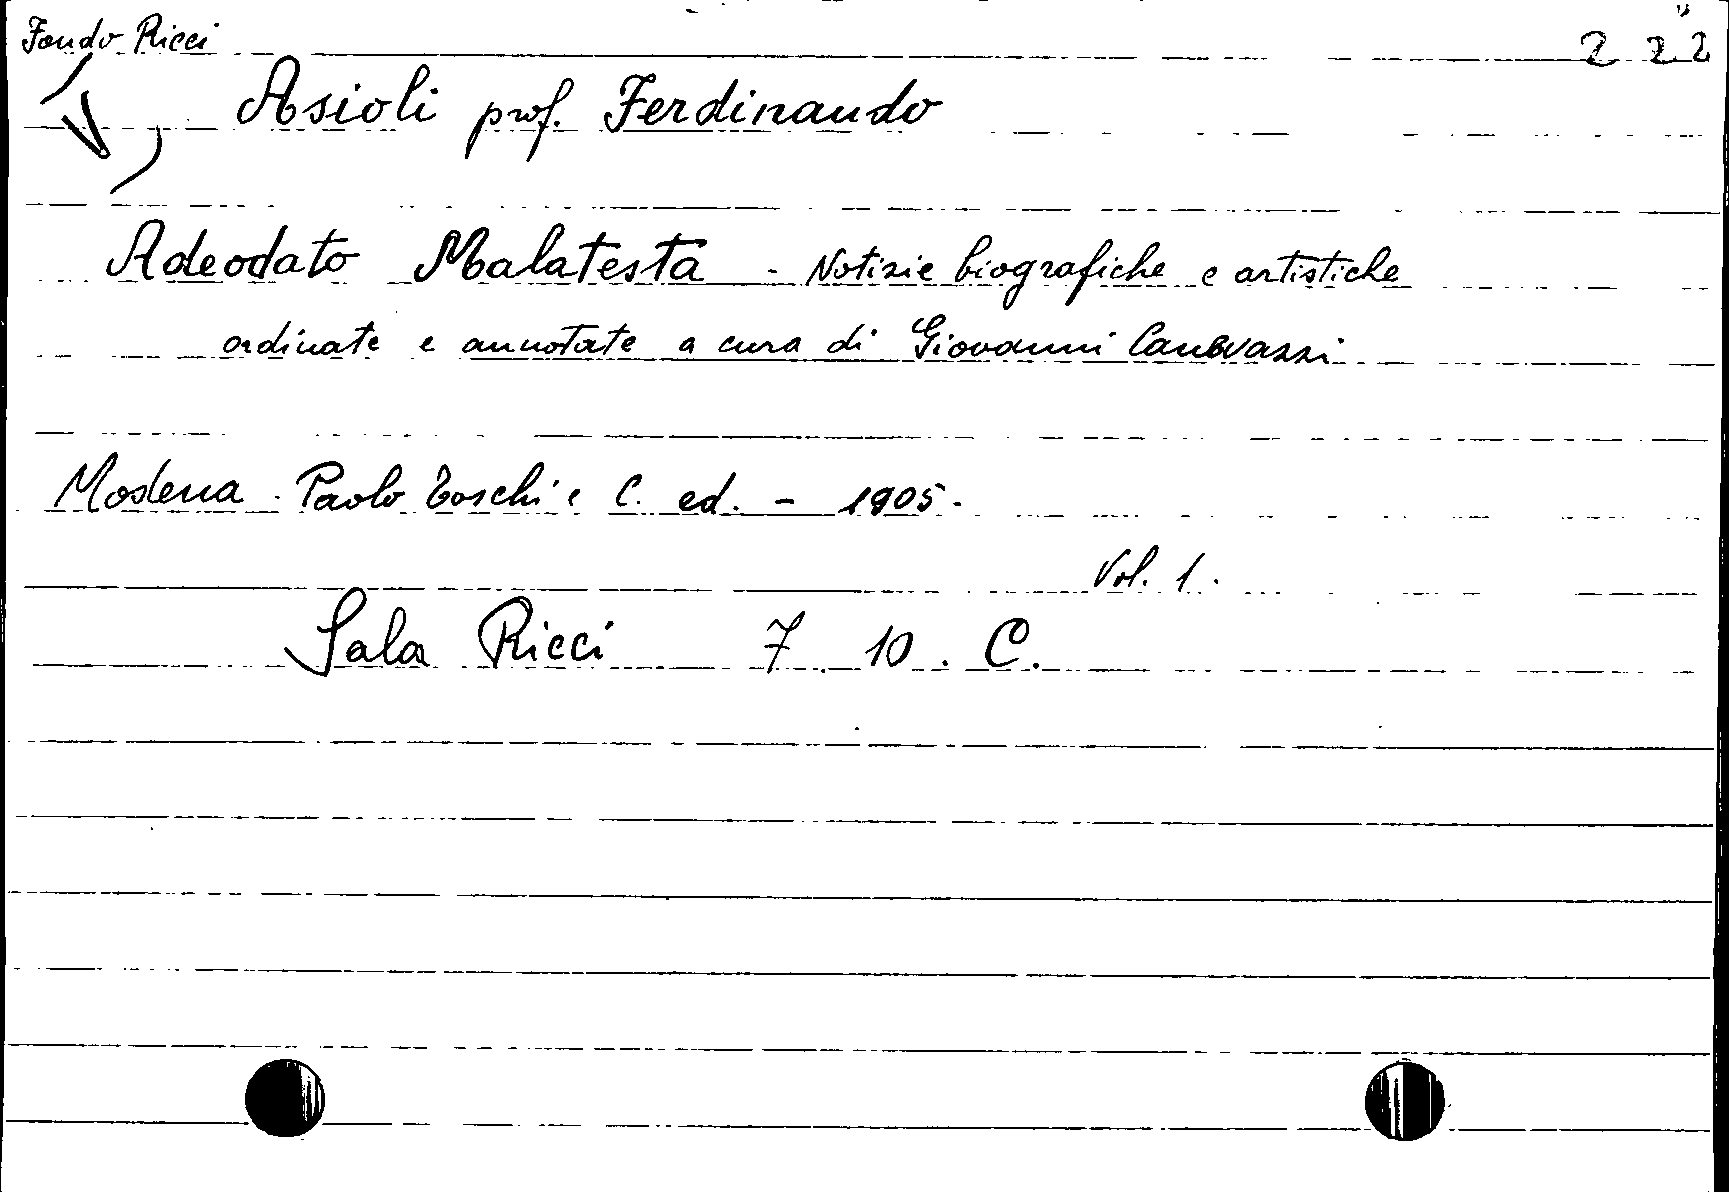 Fondo Ricci
222
Asioli prof. Ferdinando
Adeodato Malatesta - Notizie biografiche e artistiche
ordinate e annotate a cura di Giovanni Canevazzi
Modena - Paolo Toschi e C. ed. - 1905.
Vol. 1.
Sala Ricci 7. 10. C.